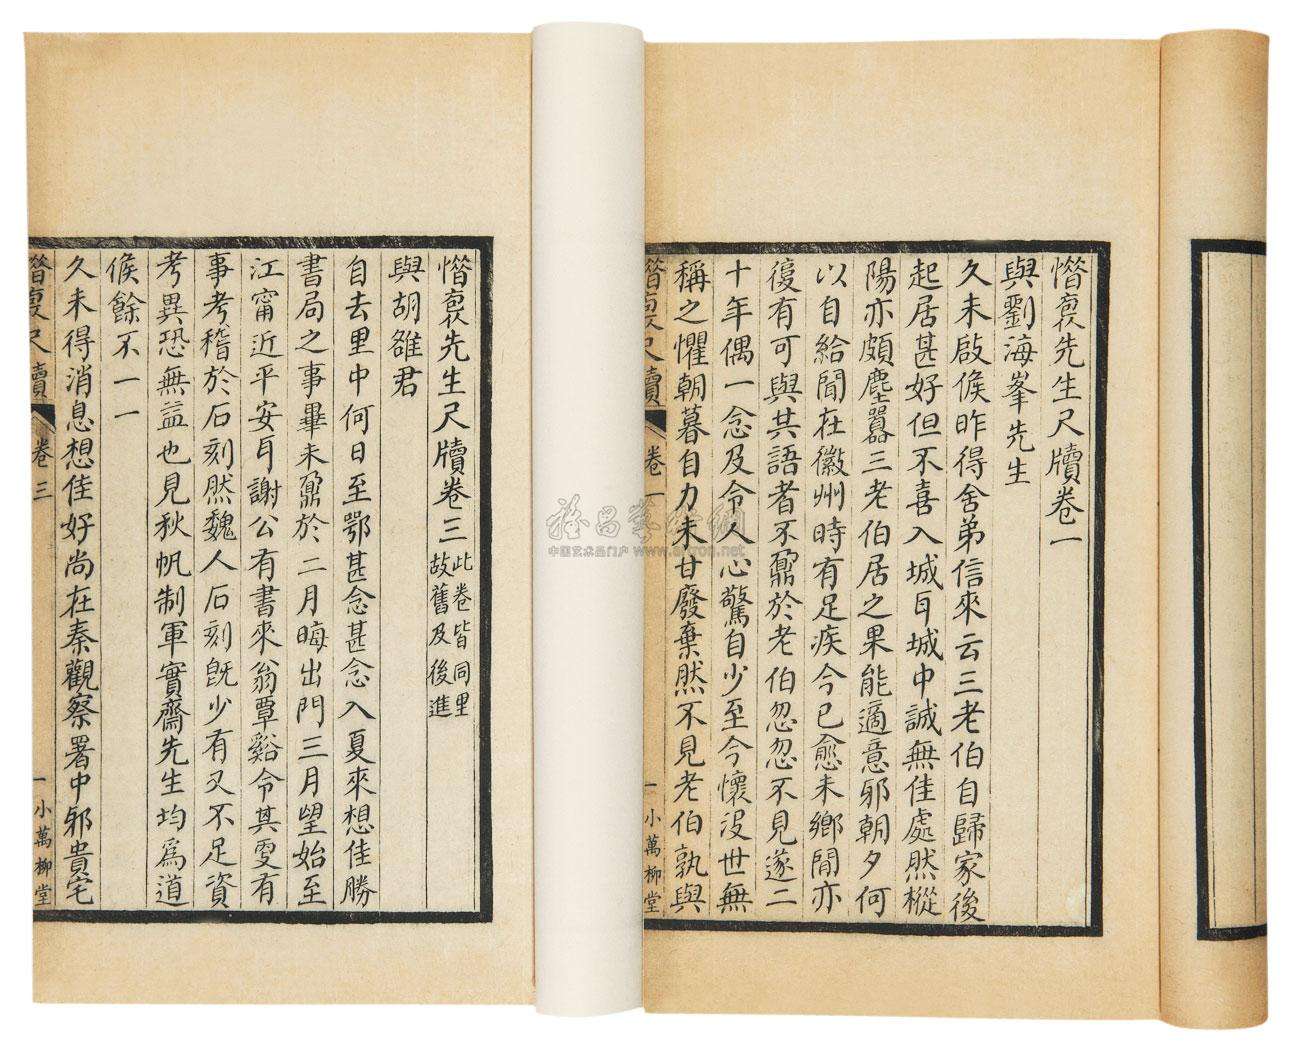 惜裒先生尺牘卷一
與劉海峯先生
久未啟候昨得舍弟信來云三老伯自歸家後
起居甚好但不喜入城耳城中誠無佳處然樅
陽亦頗塵囂三老伯居之果能適意邪朝夕何
以自給聞在徽州時有足疾今已愈未鄉閒亦
復有可與其語者不鼐於老伯忽忽不見遂二
十年偶一念及令人心驚自少至今懷沒世無
稱之懼朝暮自力未甘廢棄然不見老伯孰與
惜裒尺牘 卷一 一 小萬柳堂
惜裒先生尺牘卷三 此卷皆同里
故舊及後進
與胡雒君
自去里中何日至鄂甚念甚念入夏來想佳勝
書局之事畢未鼐於二月晦出門三月望始至
江甯近平安耳謝公有書來翁覃谿令其雯有
事考稽於石刻然魏人石刻旣少有又不足資
考異恐無益也見秋帆制軍實齋先生均爲道
候餘不一一
久未得消息想佳好尚在秦觀察署中邪貴宅
惜裒尺牘 卷三 一 小萬柳堂
中国艺术品门户 www.artron.net